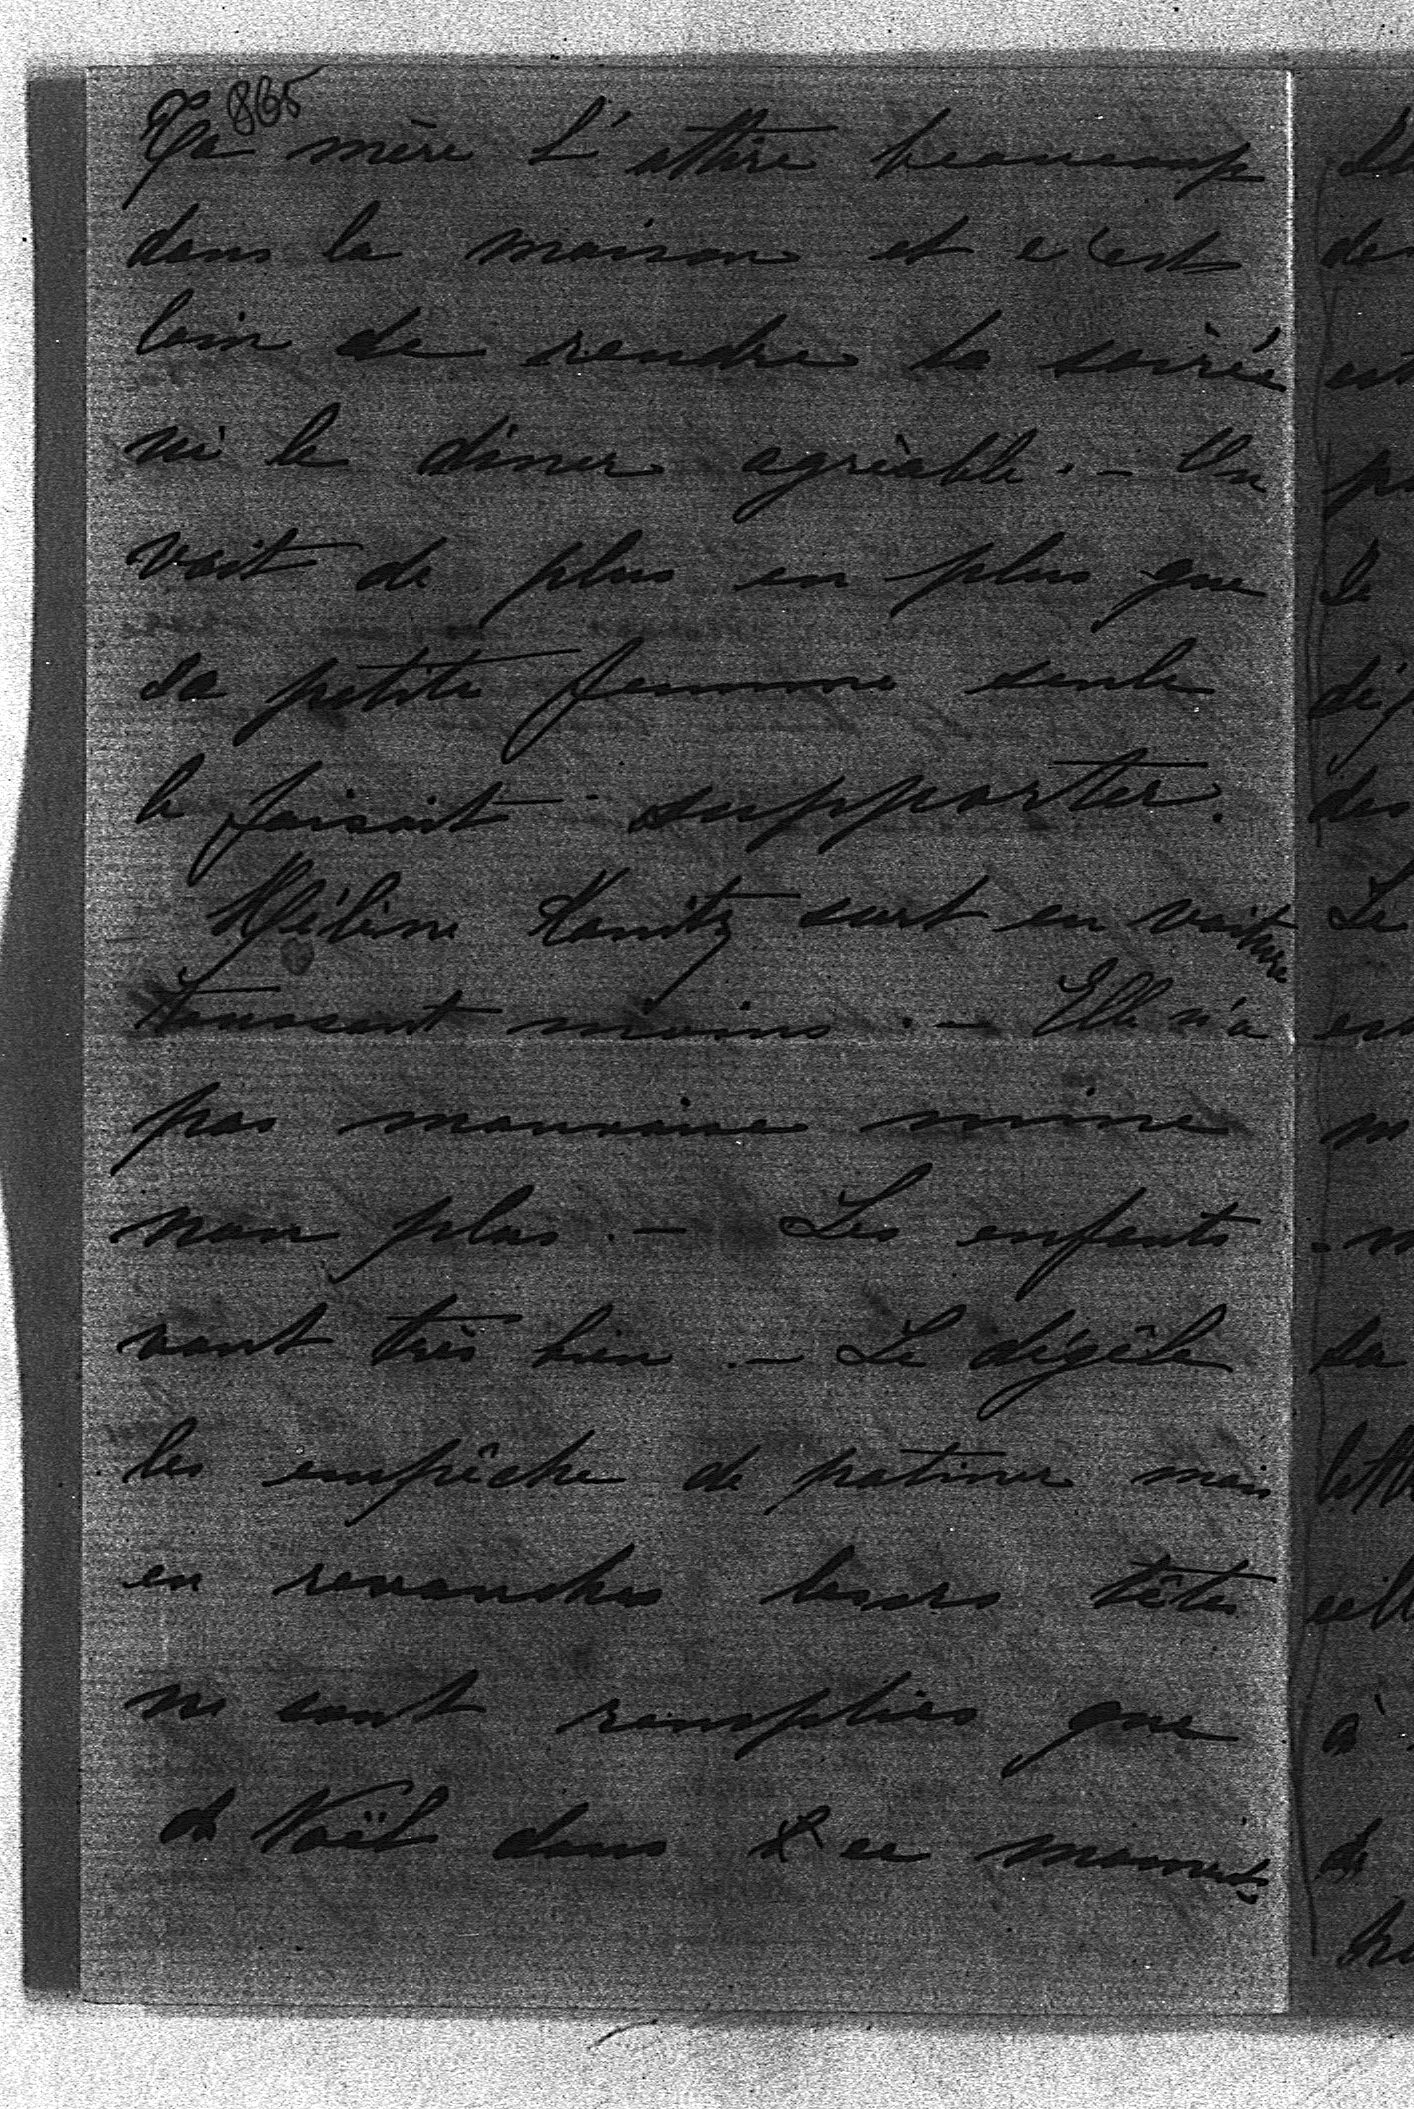 865
Ta mère l'attire beaucoup
dans la maison et c'est
loin de rendre la soirée
ni le diner agréable. – On
voit de plus en plus que
sa petite femme seule
le faisait supporter.
Hélène sort en voiture
toussent moins. – Elle n'a
pas mauvaise mine
non plus. – Les enfants
vont très bien. – Le dégêle
les empêche de patiner mais
en revanches leurs têtes
ne sont remplies que
de Noël dans ce moment